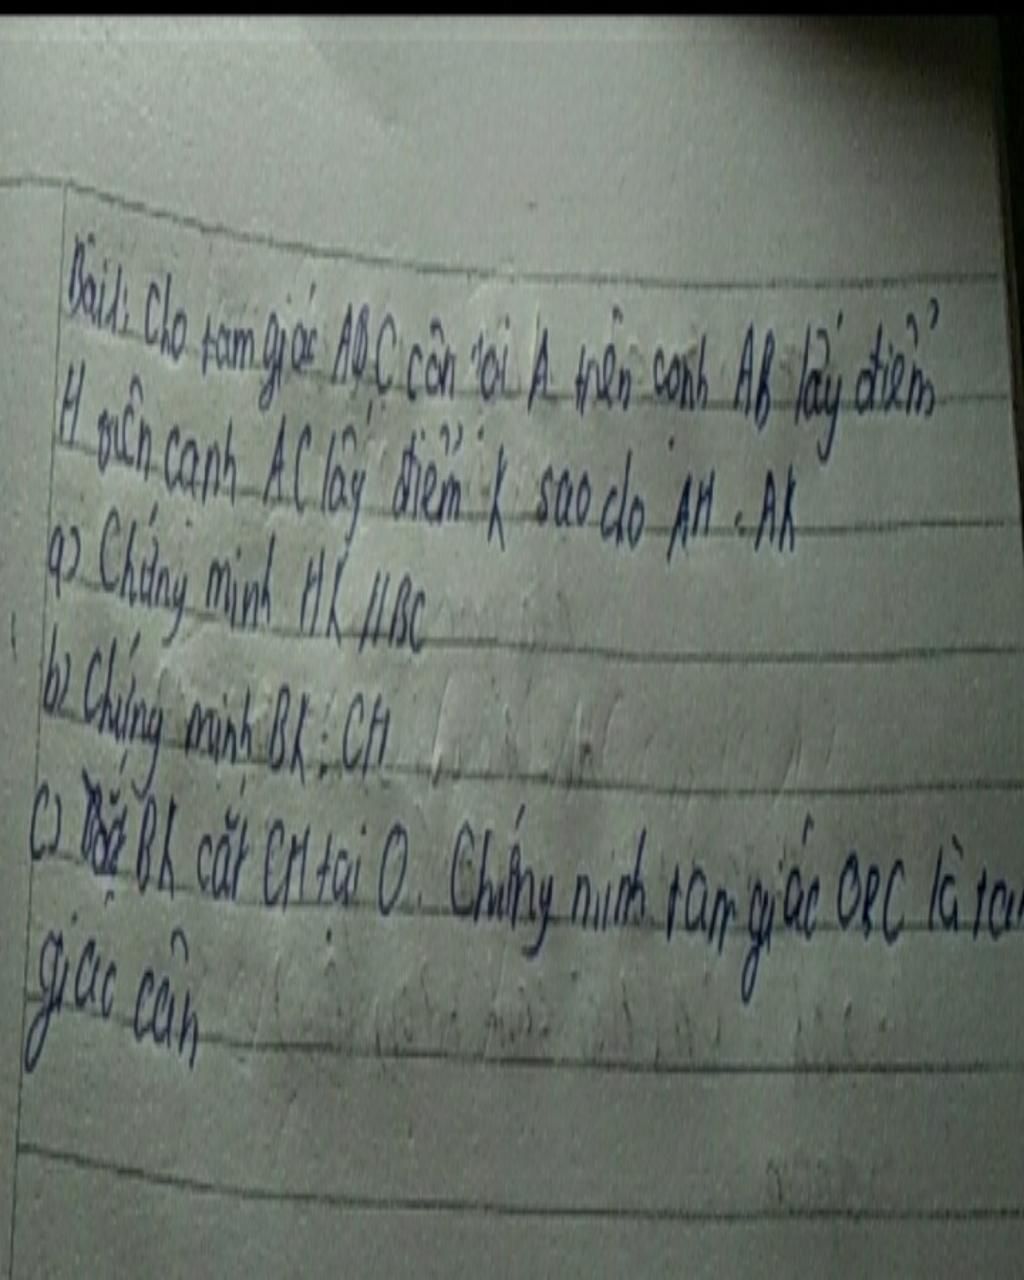 Bài 1: Cho tam giác ABC cân tại A trên cạnh AB lấy điểm
H trên cạnh AC lấy điểm K sao cho AH = AK
a) Chứng minh HK // BC
b) Chứng minh BK = CH
c) BK cắt CH tại O. Chứng minh tam giác OBC là tam
giác cân